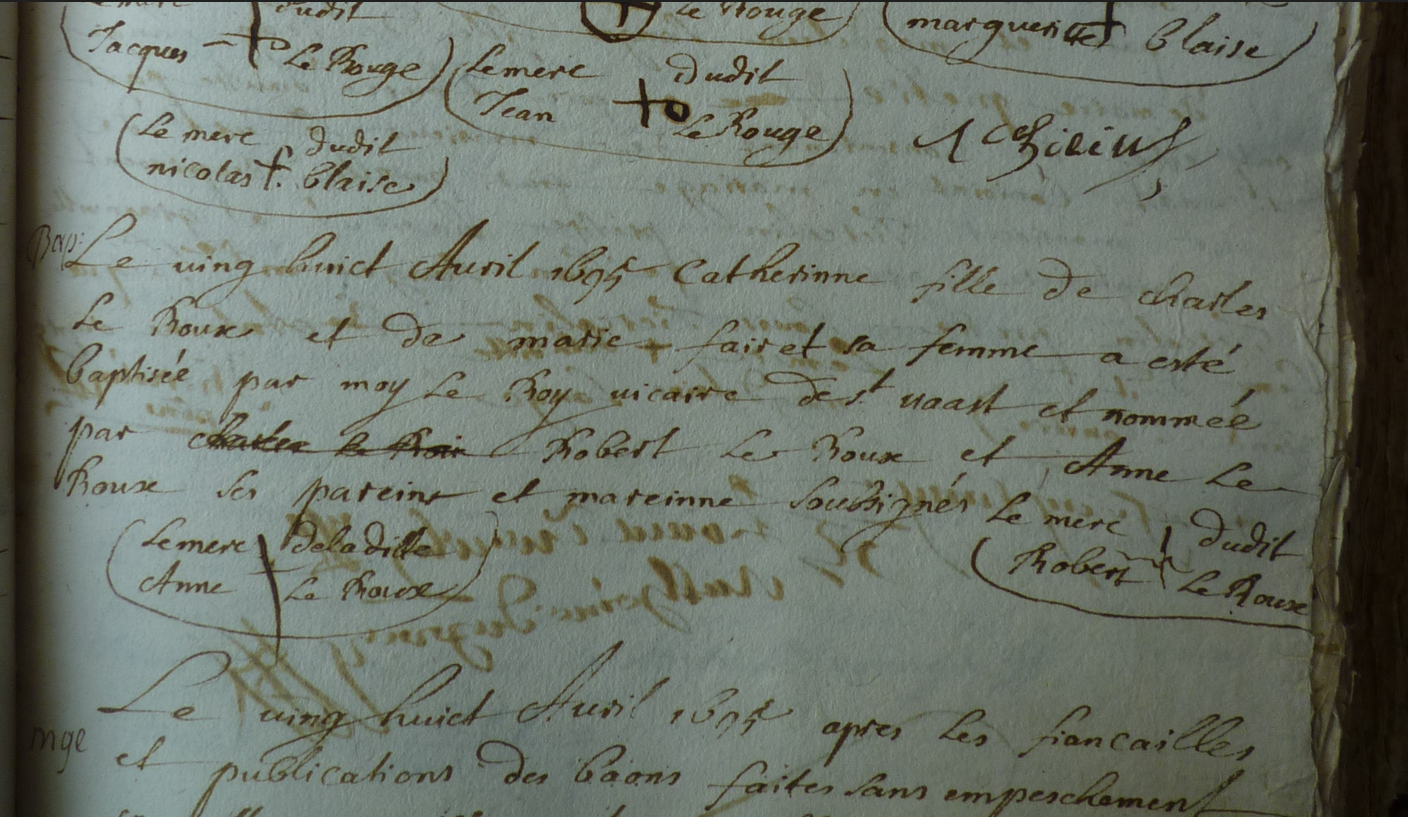 dudit
Le Rouge
marguerite blaise
Jacques Le Rouge
Le merc dudit
Jean Le Rouge
Le merc dudit
nicolas blaise
Bap:
Le ving huict Avril 1695 Catherinne fille de charles
Le Roux et de marie fairet sa femme a esté
baptisée par moy Le Roy vicaire de st vaast et nommée
par Robert Le Roux et Anne Le
Roux ses pareins et mareinne soubsignés
Le merc dudit
Robert Le Roux
Le merc de la ditte
Anne Le Roux
mge
Le ving huict Avril 1695 apres les fiancailles
et publications des baons faites sans empeschement